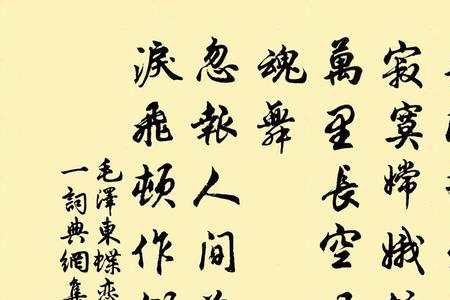 寂寞嫦娥
萬里長空
魂舞
忽報人間
淚飛頓作
毛澤東蝶恋
一詞典網集